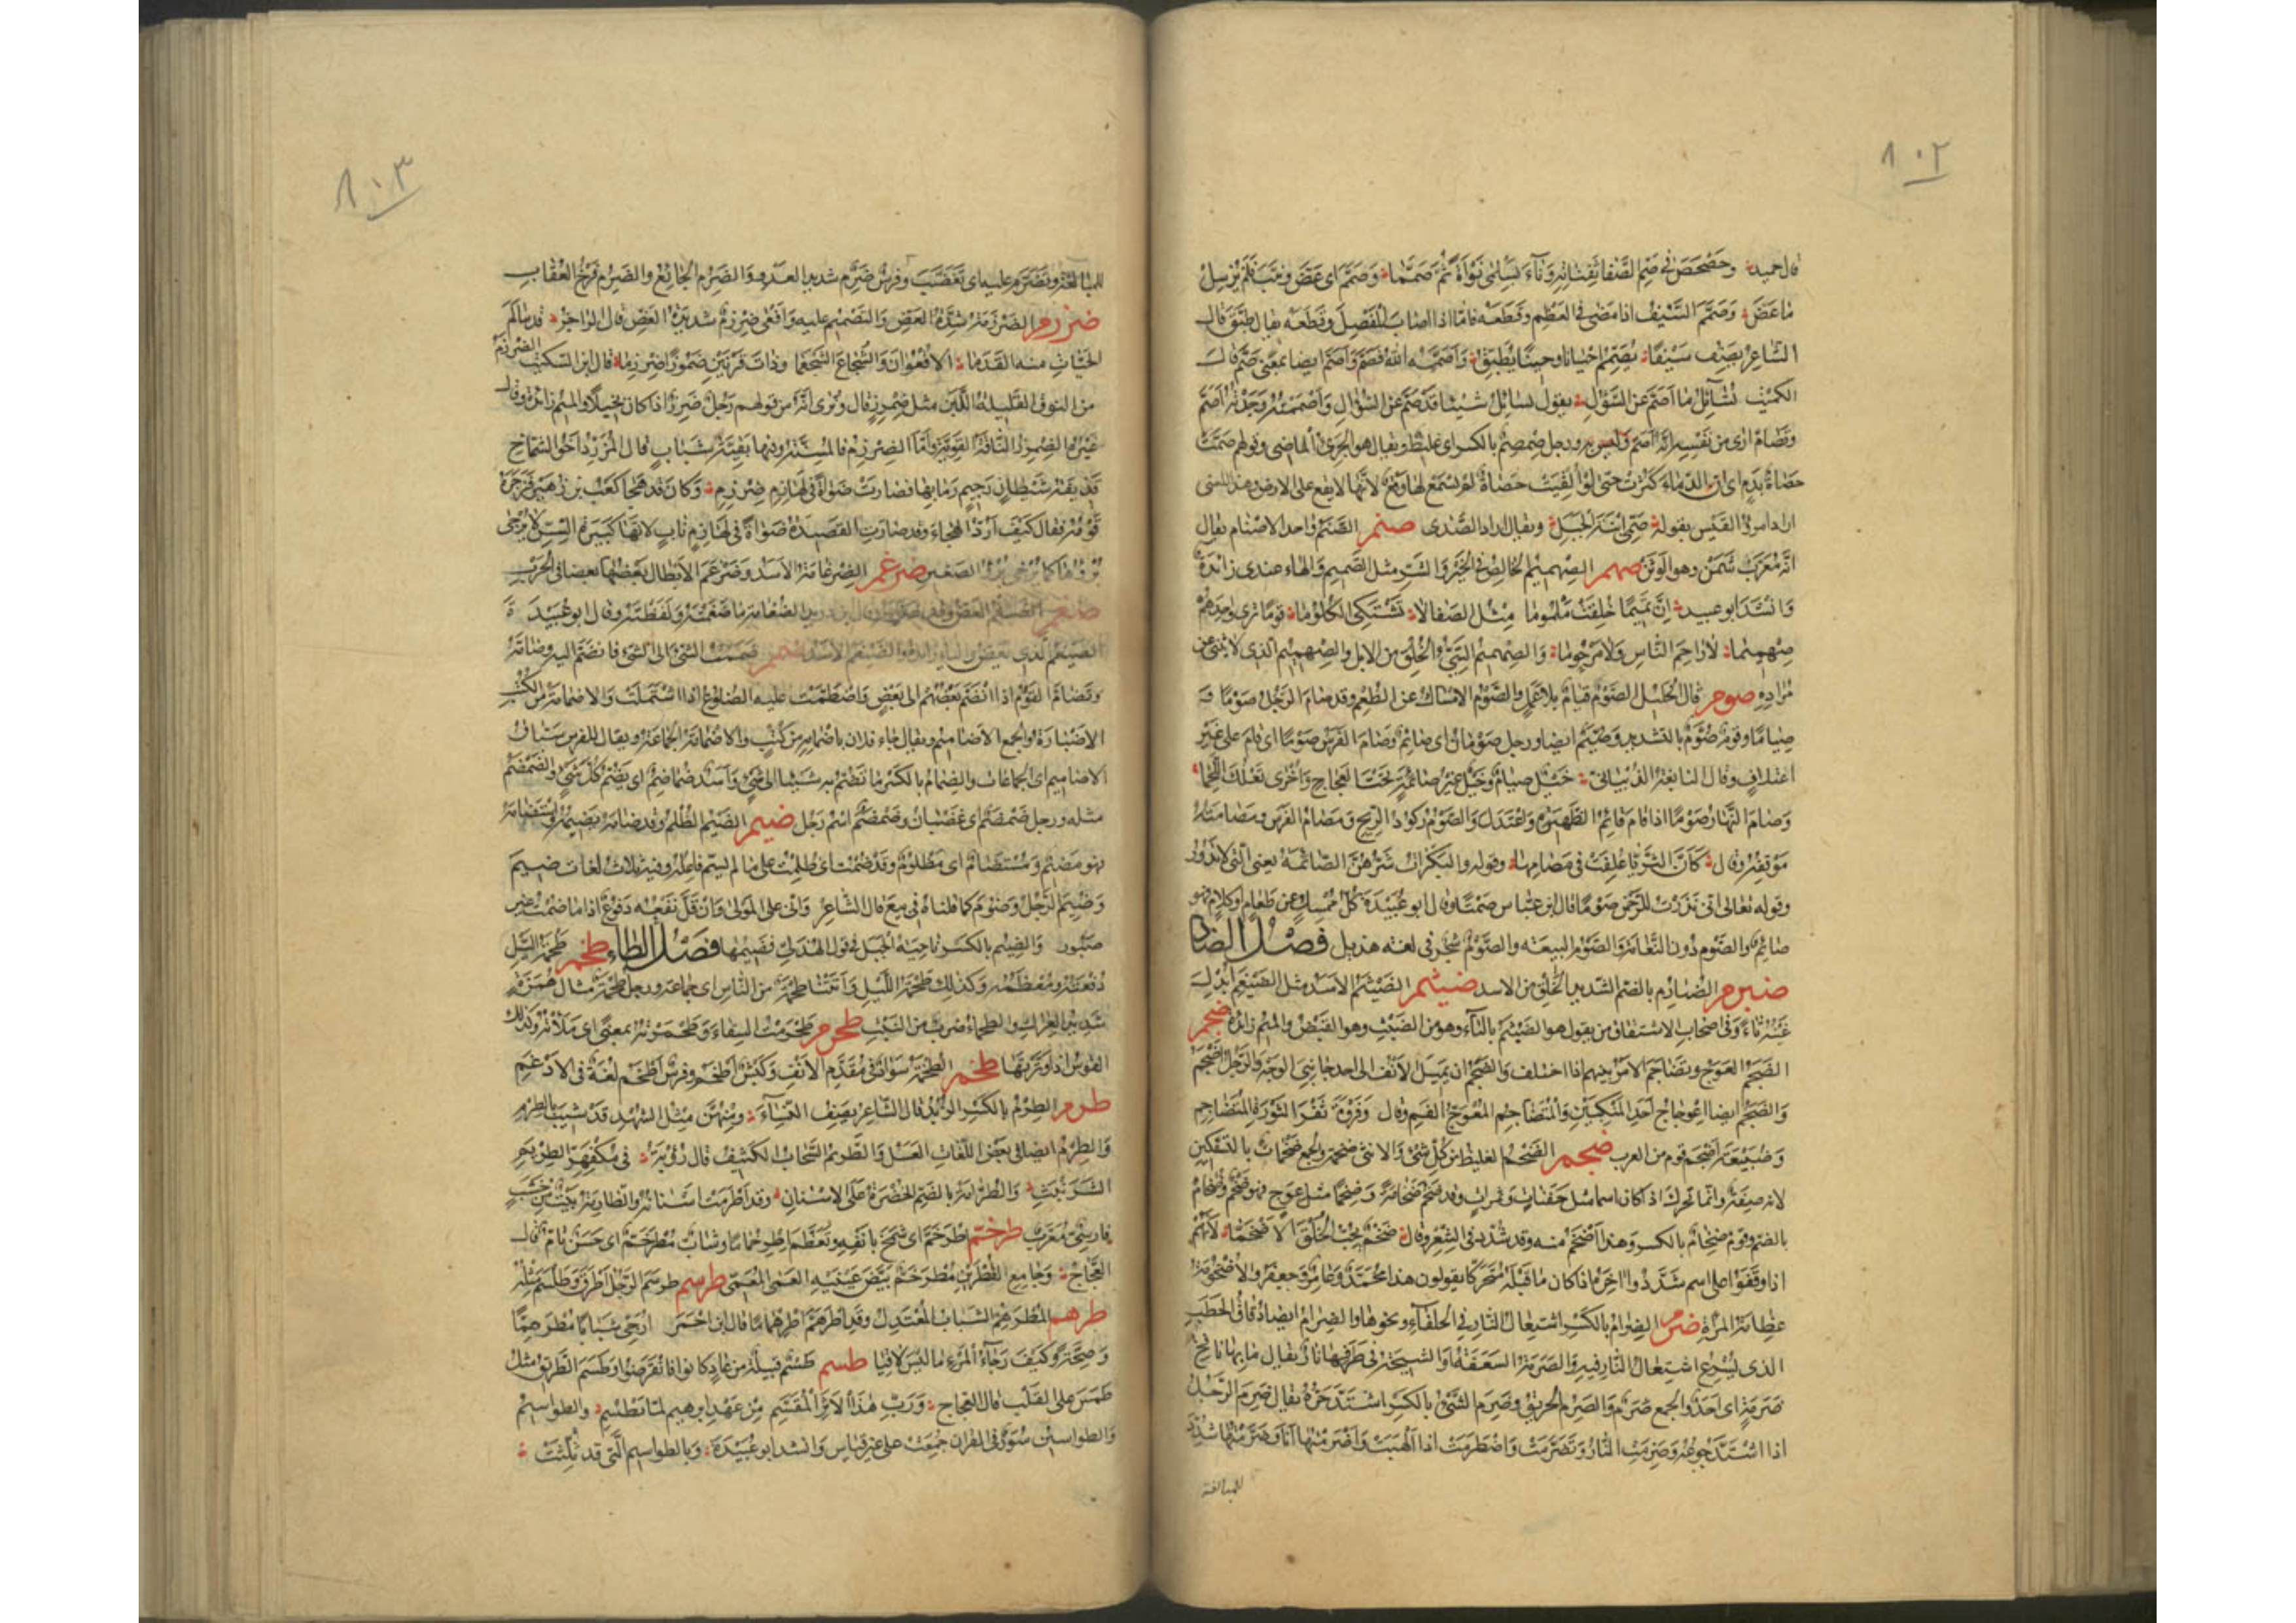 ١٠٢
قال حميد وحصحص في صم الصفا ثفناته وناء بسلمى نوأة ثم صمما وصمم اى عض ونيب فلم يرسل
ما عض وصمم السيف اذا مضى في العظم وقطعه فاما اذا اصاب المفصل وقطعه يقال طبق قال
الشاعر يصف سيفا يصمم احيانا وحينا يطبق واصمه الله فصم واصم ايضا بمعنى صم قال
الكميت تسائل ما اصم عن السؤال يقول تسائل شيئا قد صم عن السؤال واصممته وجدته اصم
وتصام ارى من نفسه انه اصم وليس به ورجل صمصم بالكسر اى غليظ ويقال هو الجرئ الماضى وقولهم صمت
حصاة بدم اى ان الدماء كثرت حتى لو القيت حصاة لم يسمع لها وقع لانها لا يقع على الارض وهذا المعنى
اراد امرؤ القيس بقوله صمى ابنة الجبل ويقال اراد الصدى صنم الصنم واحد الاصنام يقال
انه معرب شمن وهو الوثن صهم الصهميم الخالص في الخير والشر مثل الصميم والهاء عندى زائدة
وانشد ابو عبيد ان تميما خلقت ملموما مثل الصفا لا تشتكى الكلوما قوما ترى واحدهم
صهميما لا راحم الناس ولا مرحوما والصهميم السيئ الخلق من الابل والصهميم الذى لا يثنى عن
مراده صوم قال الخليل الصوم قيام بلا عمل والصوم الامساك عن الطعم وقد صام الرجل صوما
صياما وقوم صوم بالتشديد وصيم ايضا ورجل صومان اى صائم وصام الفرس صوما اى قام على غير
اعتلاف وقال النابغة الذبيانى خيل صيام وخيل غير صائمة تحت العجاج واخرى تعلك اللجما
وصام النهار صوما اذا قام قائم الظهيرة واعتدل والصوم ركود الريح ومصام الفرس ومصامته
موقفه وقال كأن الثريا علقت في مصامها وقوله والبكرات شرهن الصائمة يعنى التى لا تدور
وقوله تعالى انى نذرت للرحمن صوما قال ابن عباس صمتا وقال ابو عبيدة كل ممسك عن طعام او كلام فهو
صائم والصوم ذون النعامة والصوم البيعة والصوم شجر في لغة هذيل فصل الضاد
ضبرم الضبارم بالضم الشديد الخلق من الاسد ضيثم الضيثم الاسد مثل الضيغم ابدل
غينه ثاء وفى اصحاب الاشتقاق من يقول هو الضيثم بالثاء وهو من الضبث وهو القبض والميم زائدة ضجم
الضجم العوج وتضاجم الامر بينهم اذا اختلف والضجم ان يميل الانف الى احد جانبى الوجه والرجل اضجم
والضجم ايضا اعوجاج احد المنكبين والمتضاجم المعوج الفم وقال وفروة ثفر الثورة المتضاجم
وضبيعة اضجم قوم من العرب ضخم الضخم الغليظ من كل شئ والانثى ضخمة والجمع ضخمات بالتسكين
لانه صفة وانما تحرك اذ كان اسما مثل جفنات وتمرات وقد ضخم ضخامة وضخما مثل عوج فهو ضخم وضخام
بالضم وقوم ضخام بالكسر وهذا اضخم منه وقد شدد في الشعر وقال ضخم يحب الخلق الاضخما لانهم
اذا وقفوا على اسم شددوا اخره اذا كان ما قبله متحركا يقولون هذا محمد وعامر وجعفر والاضخومة
عظامة المرأة ضرم الضرام بالكسر اشتعال النار في الحلفاء ونحوها والضرام ايضا دقاق الحطب
الذى يسرع اشتعال النار فيه والضرمة السعفة او الشيحة في طرفها نار يقال ما بها نافخ
ضرمة اى احد والجمع ضرم والضرم الحريق وضرم الشئ بالكسر اشتد حره يقال ضرم الرجل
اذا اشتد جوعه وضرمت النار وتضرمت واضطرمت اذا التهبت واضرمتها انا وضرمتها شدد
للمبالغة
١٠٣
للمبالغة وتضرم عليه اى تغضب وفرس ضرم شديد العدو والضرم الجائع والضرم فرخ العقاب
ضرزم الضرزمة شدة العض والتصميم عليه وافعى ضرزم شديدة العض قال الراجز قد سالم
الحيات منه القدما الافعوان والشجاع الشجعما وذات قرنين ضموزا ضرزما قال ابن السكيت الضرزم
من النوق القليلة اللبن مثل ضمرز قال ونرى انه من قولهم رجل ضرز اذا كان بخيلا والميم زائدة وقال
غيره الضمرز الناقة القوية واما الضرزم فالمسنة وفيها بقية شباب قال المزرد اخو الشماخ
قذيفة شيطان رجيم رمى بها فصارت ضواة في لهازم ضرزم وكان قد هجا كعب بن زهير فزجره
قومه فقال كيف ارد الهجاء وقد صارت القصيدة ضواة في لهازم ناب لانها كبيرة السن لا يرجى
برؤها كما يرجى برؤ الصغير ضرغم الضرغامة الاسد وضرغم الابطال بعضها بعضا في الحرب
ضغم الضغم العض وقد ضغمه قال ابن دريد الضغامة ما ضغمته ولفظته وقال ابو عبيدة
الضيغم الذى يعض والياء زائدة والضيغم الاسد ضمم ضممت الشئ الى الشئ فانضم اليه وضامه
وتضام القوم اذا انضم بعضهم الى بعض واضطمت عليه الضلوع اذا اشتملت والاضمامة من الكتب
الاضبارة والجمع الاضاميم ويقال جاء فلان باضمامة من كتب والاضمامة الجماعة ويقال للفرس سباق
الاضاميم اى الجماعات والضمام بالكسر ما تضم به شيئا الى شئ واسد ضماضم اى يضم كل شئ والضمضم
مثله ورجل ضمضم اى غضبان وضمضم اسم رجل ضيم الضيم الظلم وقد ضامه يضيمه واستضامه
فهو مضيم ومستضام اى مظلوم وقد ضمت اى ظلمت على ما لم يسم فاعله وفيه ثلاث لغات ضيم
وضيم الرجل وضوم كما قلناه في بيع قال الشاعر وانى على المولى وان قل نفعه دفوع اذا ما ضمت غير
صبور والضيم بالكسر ناحية الجبل في قول الهذلى فضيمها فصل الطاء طحم طحمة السيل
دفعته ومعظمه وكذلك طحمة الليل واتتنا طحمة من الناس اى جماعة ورجل طحمة مثال همزة
شديد العراك والطحماء ضرب من النبت طحرم طحرمت السقاء وطحمرته بمعنى اى ملاته وكذلك
القوس اذا وترتها طخم الطخمة سواد في مقدم الانف وكبش اطخم وفرس اطخم لغة في الادغم
طرم الطرم بالكسر الزبد قال الشاعر يصف النساء ومنهن مثل الشهد قد شيب بالطرم
والطرم ايضا في بعض اللغات العسل والطريم السحاب الكثيف قال رؤبة في مكفهر الطريم
الشرنبث والطرامة بالضم الخضرة على الاسنان وقد اطرمت اسنانه والطارمة بيت من خشب
فارسى معرب طرخم اطرخم اى شمخ بانفه وتعظم اطرخماما وشاب مطرخم اى حسن تام قال
العجاج وجامع القطرين مطرخم بيض عينيه العمى المعمى طرسم طرسم الرجل اطرق وطلسم مثله
طرهم المطرهم الشباب المعتدل وقد اطرهم اطرهماما قال ابن احمر ارجى شبابا مطرهما
وصحة وكيف رجاء المرء ما ليس لاقيا طسم طسم قبيلة من عاد كانوا فانقرضوا وطسم الطريق مثل
طمس على القلب قال العجاج ورب هذا الاثر المقسم من عهد ابرهيم لما تطسم والطواسيم
والطواسين سور في القران جمعت على غير قياس وانشد ابو عبيدة وبالطواسيم التى قد ثلثت